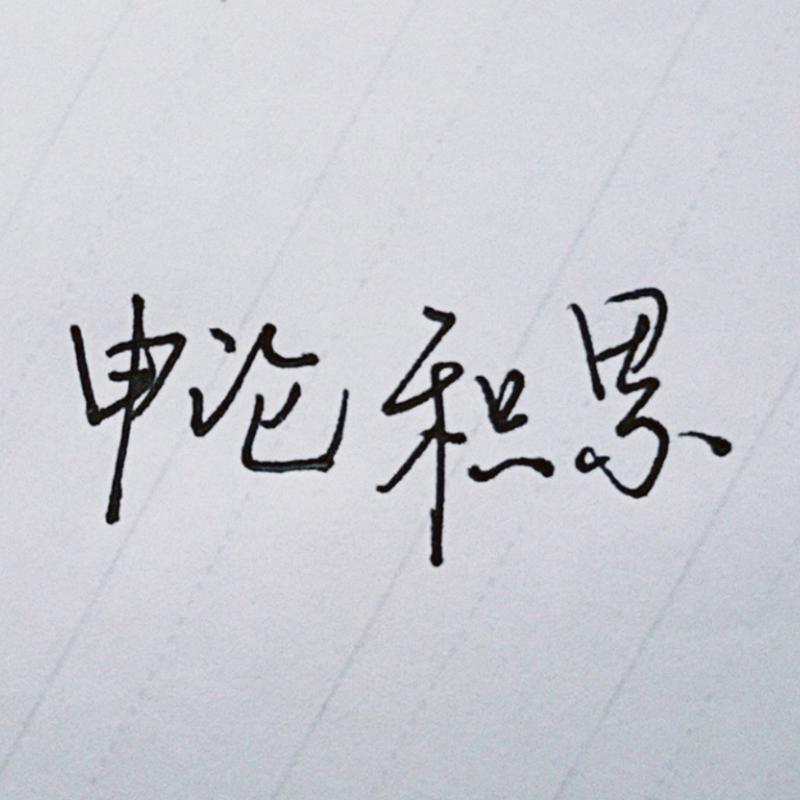 申论积累